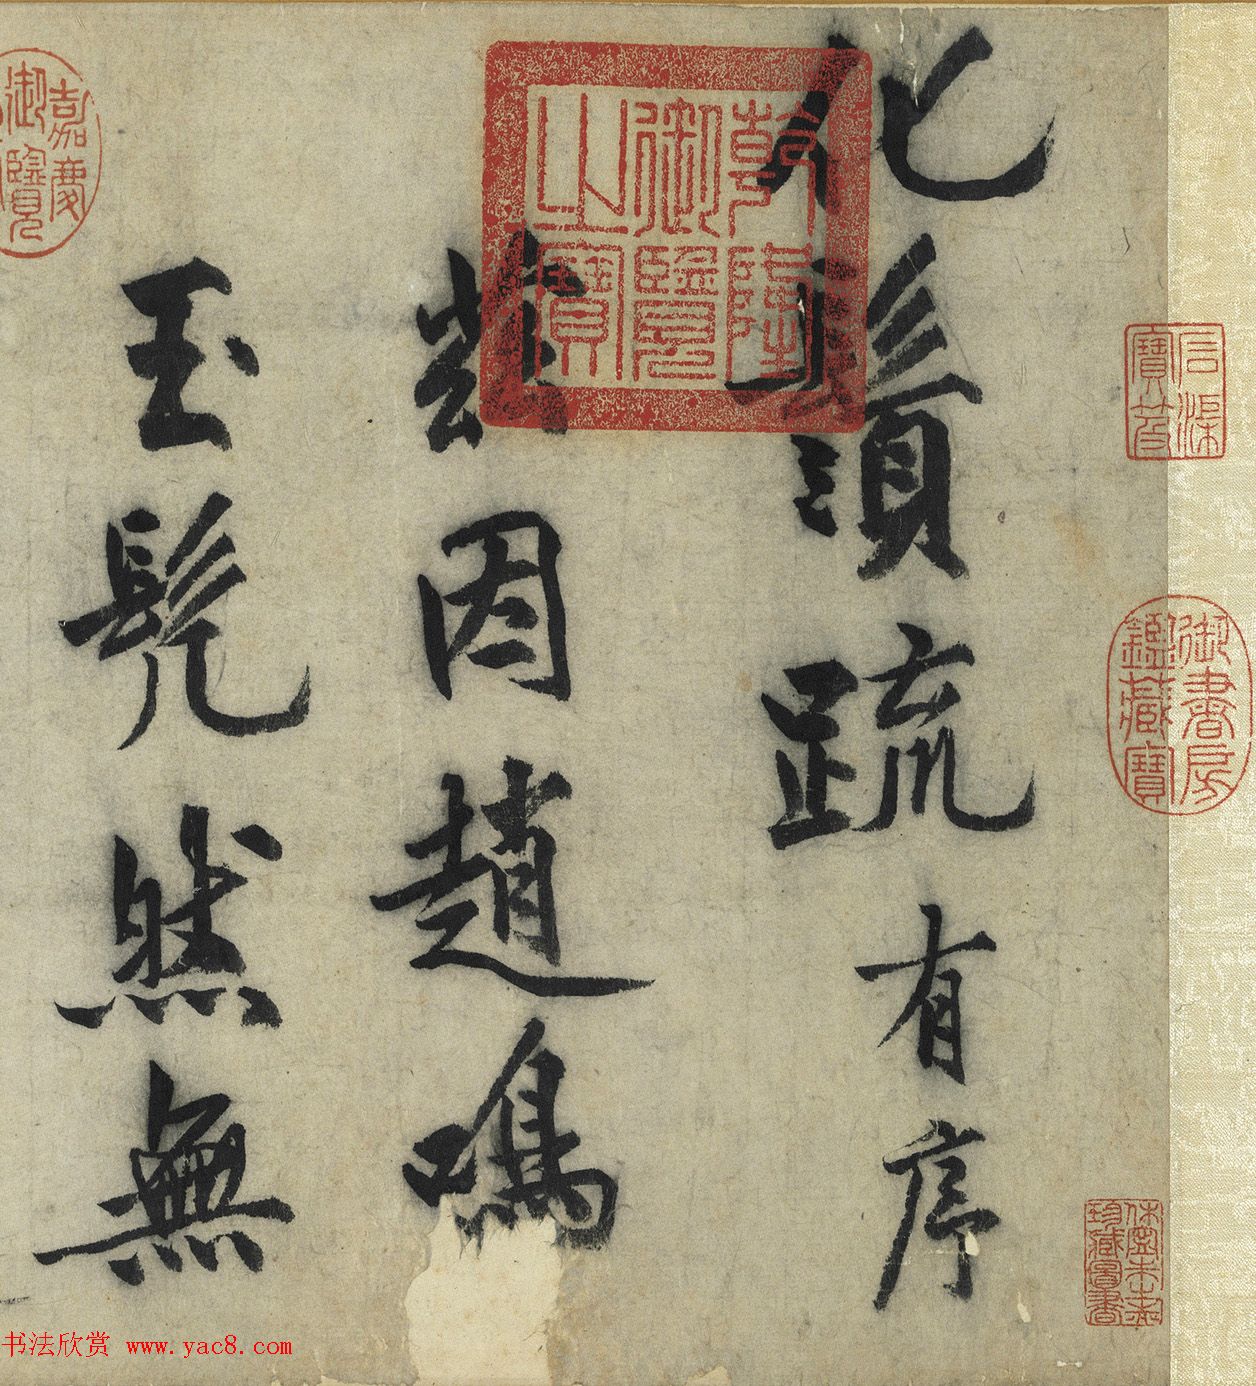 休寧朱之赤
珍藏圖書
石渠
寶笈
御書房
鑑藏寶
化鬚疏有序
乾隆
御覽
之寶
茲因趙鳴
玉髡然無
嘉慶
御覽
书法欣赏 www.yac8.com